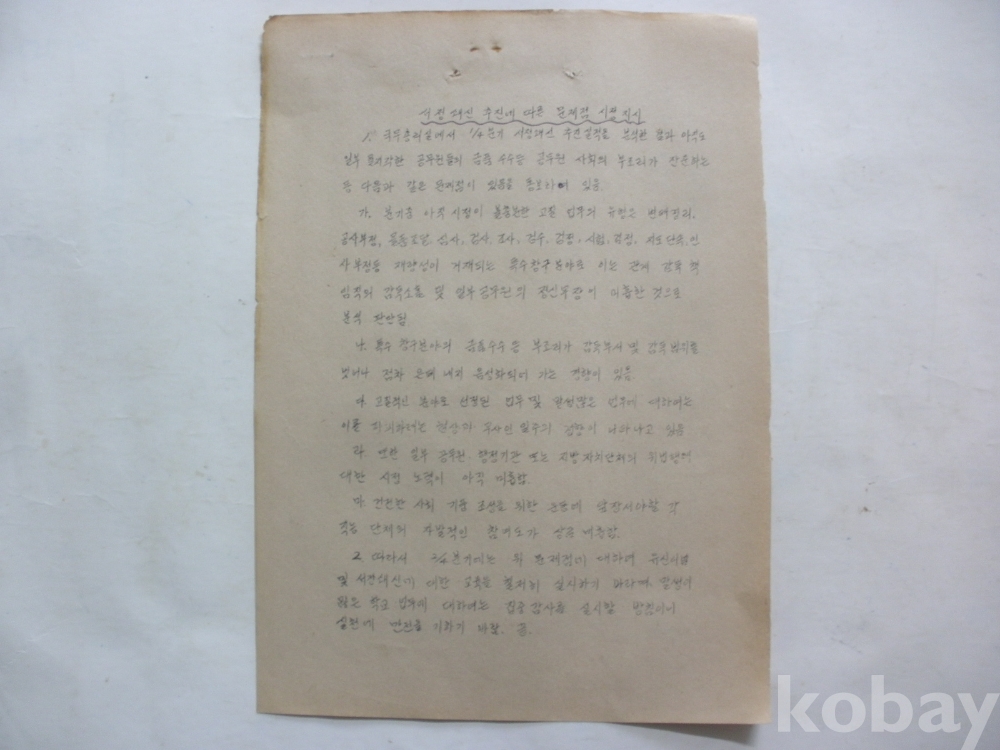 서정쇄신 추진에 따른 문제점 시정 지시
1. 국무총리실에서 1/4분기 서정쇄신 추진실적을 분석한 결과 아직도
일부 공무원들의 금품수수등 공무원 사회의 부조리가 잔존하는
등 다음과 같은 문제점이 있음을 통보하여 있음.
가. 본기중 아직 시정이 고질 업무의 유형은
공사부정, 심사, 검사, 조사, 검수, 검정, 시험, 지도단속, 인
사부정등 재량성이 특수창구분야로 이는 관계 감독 책
임직의 감독소홀 및 일부공무원의 정신무장이 미흡한 것으로
분석 판단됨
나. 특수 창구분야의 금품수수 등 부조리가 감독부서 및 감독범위를
벗어나 점차 은폐 내지 음성화되어 가는 경향이 있음.
다. 고질적인 분야로 선정된 업무 및 말썽많은 업무에 대하여는
이를 기피하려는 현상과 무사안일주의 경향이 나타나고 있음
라. 또한 일부 공무원, 행정기관 또는 지방자치단체의
대한 시정 노력이 아직 미흡함.
마. 건전한 사회 기풍 조성을 위한 운동에 앞장서야할 각
직능 단체의 자발적인 참여도가 상금 미흡함.
2. 따라서 2/4분기에는 위 문제점에 대하여 유신이념
및 서정쇄신에 대한 교육을 철저히 실시하기 바라며 말썽이
많은 학교 업무에 대하여는 집중감사를 실시할 방침이니
실천에 만전을 기하기 바람. 끝.
kobay